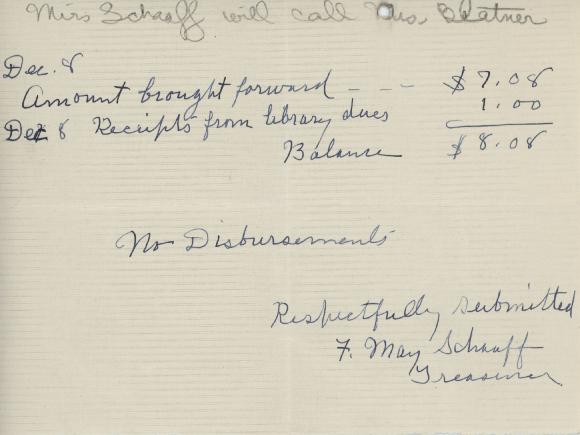 Miss Schaaff will call Mrs.
Dec. 8
Amount brought forward - - - $7.08
Dec 8 Receipts from library dues 1.00
Balance $8.08
No Disbursements
Respectfully submitted
F. May Schaaff
Treasurer